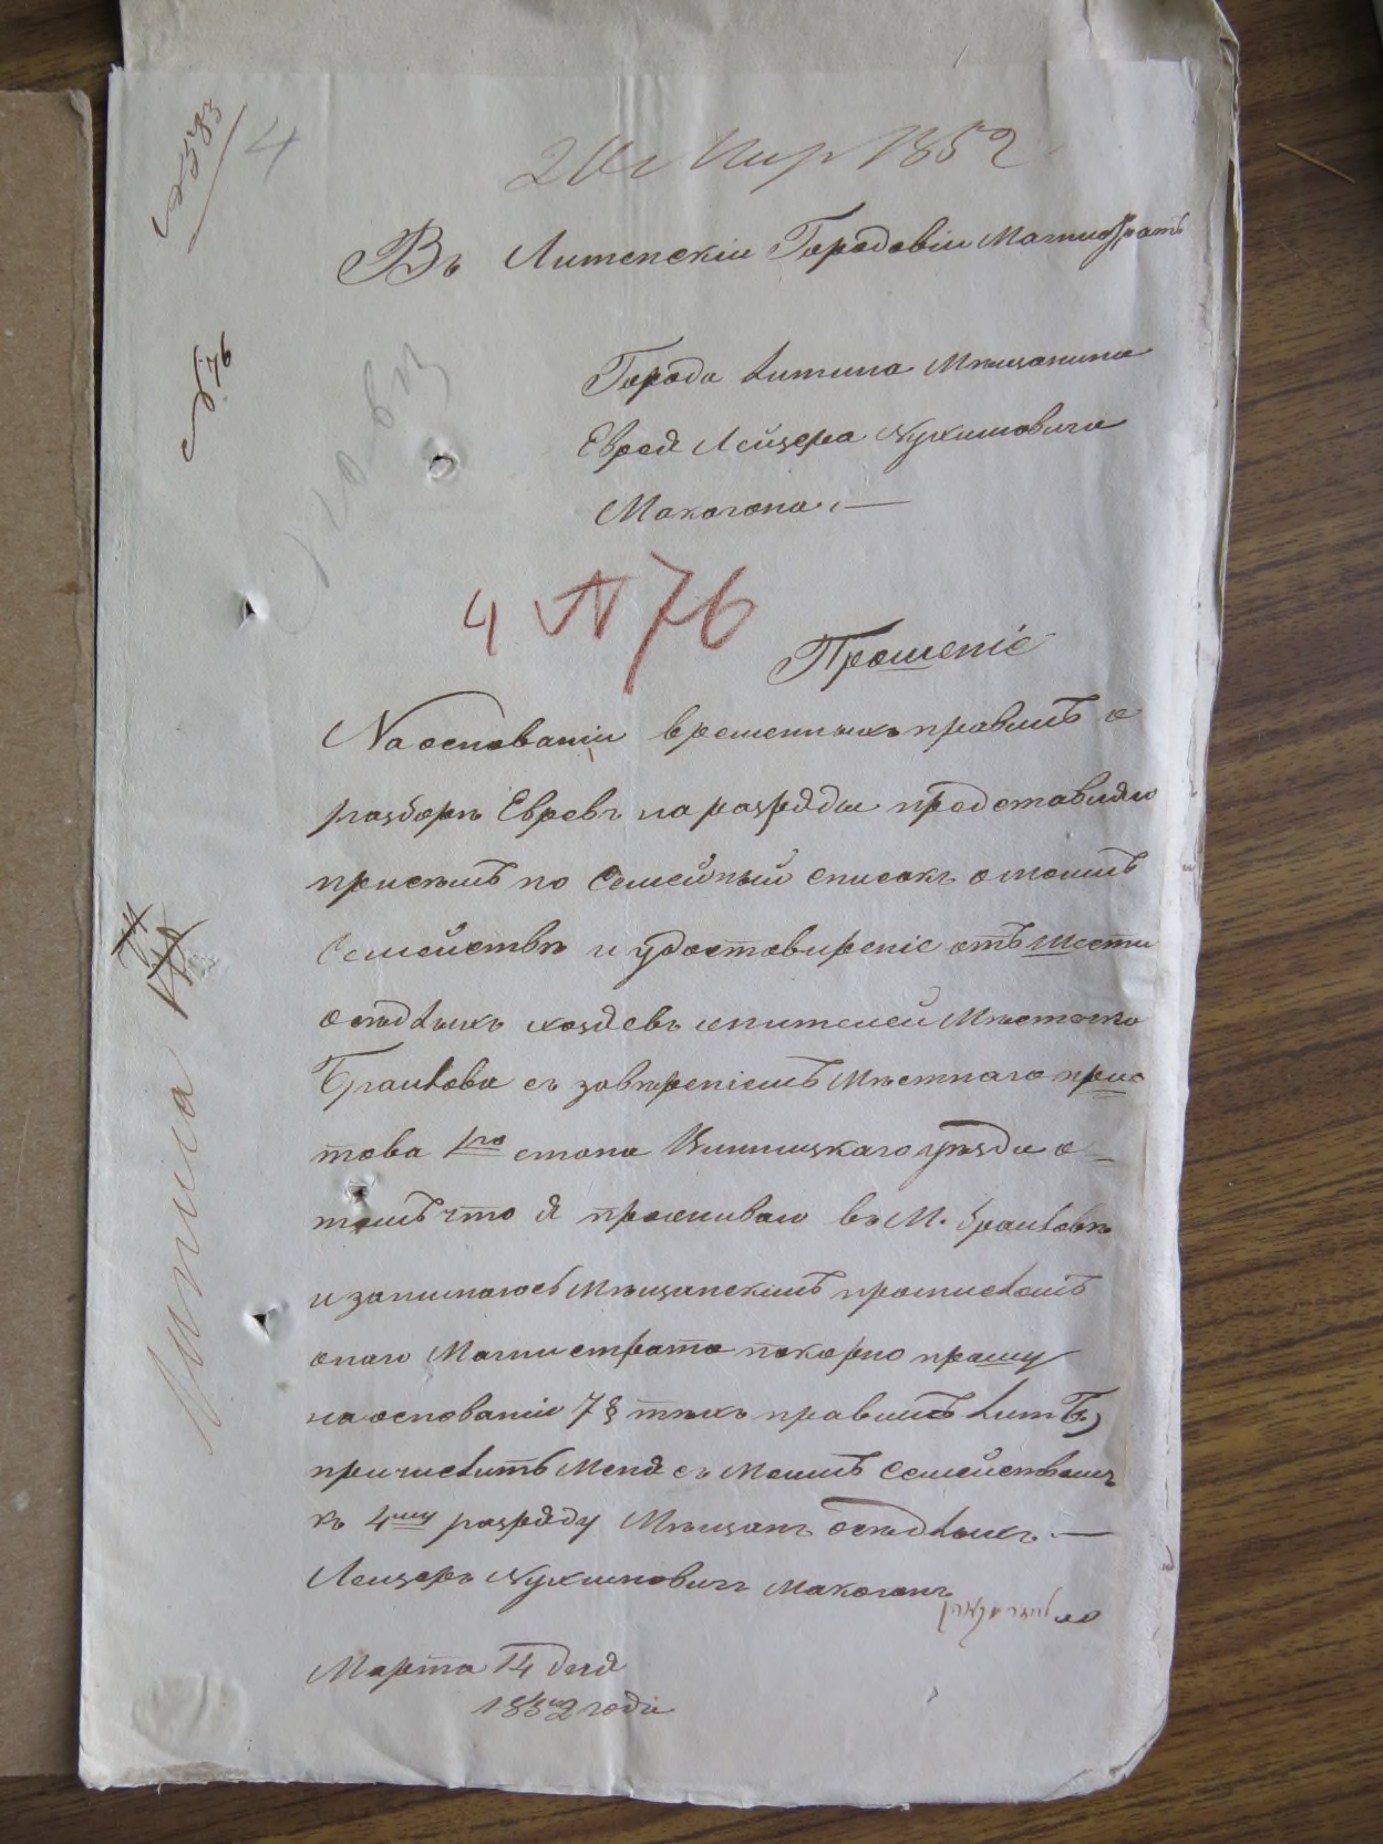 № 583
4
1852
Въ Литенскіи Городовіи Магистратъ
№ 76
Города Литина Мѣщанина
Еврея Лейзера Нухимовича
Макогона. —
4 № 76
Прошеніе
На основаніи временныхъ правилъ о
разборѣ Евревъ на разряды представляю
при семъ по Семейный списокъ о моемъ
Семействѣ и удостовиреніе отъ шести
осѣдлыхъ хозяевъ жителей Мѣстечка
Браилова съ завѣреніемъ Мѣстнаго прис
това 1го стана Винницкаго уѣзда о
томъ что я проживаю въ М. Браиловѣ
и занимаюсь Мѣщанскимъ промисломъ
оного Магистрата покорно прошу
на основаніи 7 § тѣхъ правилъ Лит Б)
причислить Меня съ Моимъ Семействомъ
къ 4му разряду Мѣщанъ осѣдлыхъ. —
Лейзеръ Нухимовичъ Макогонъ
Марта 14 дня
1852 года
Литина